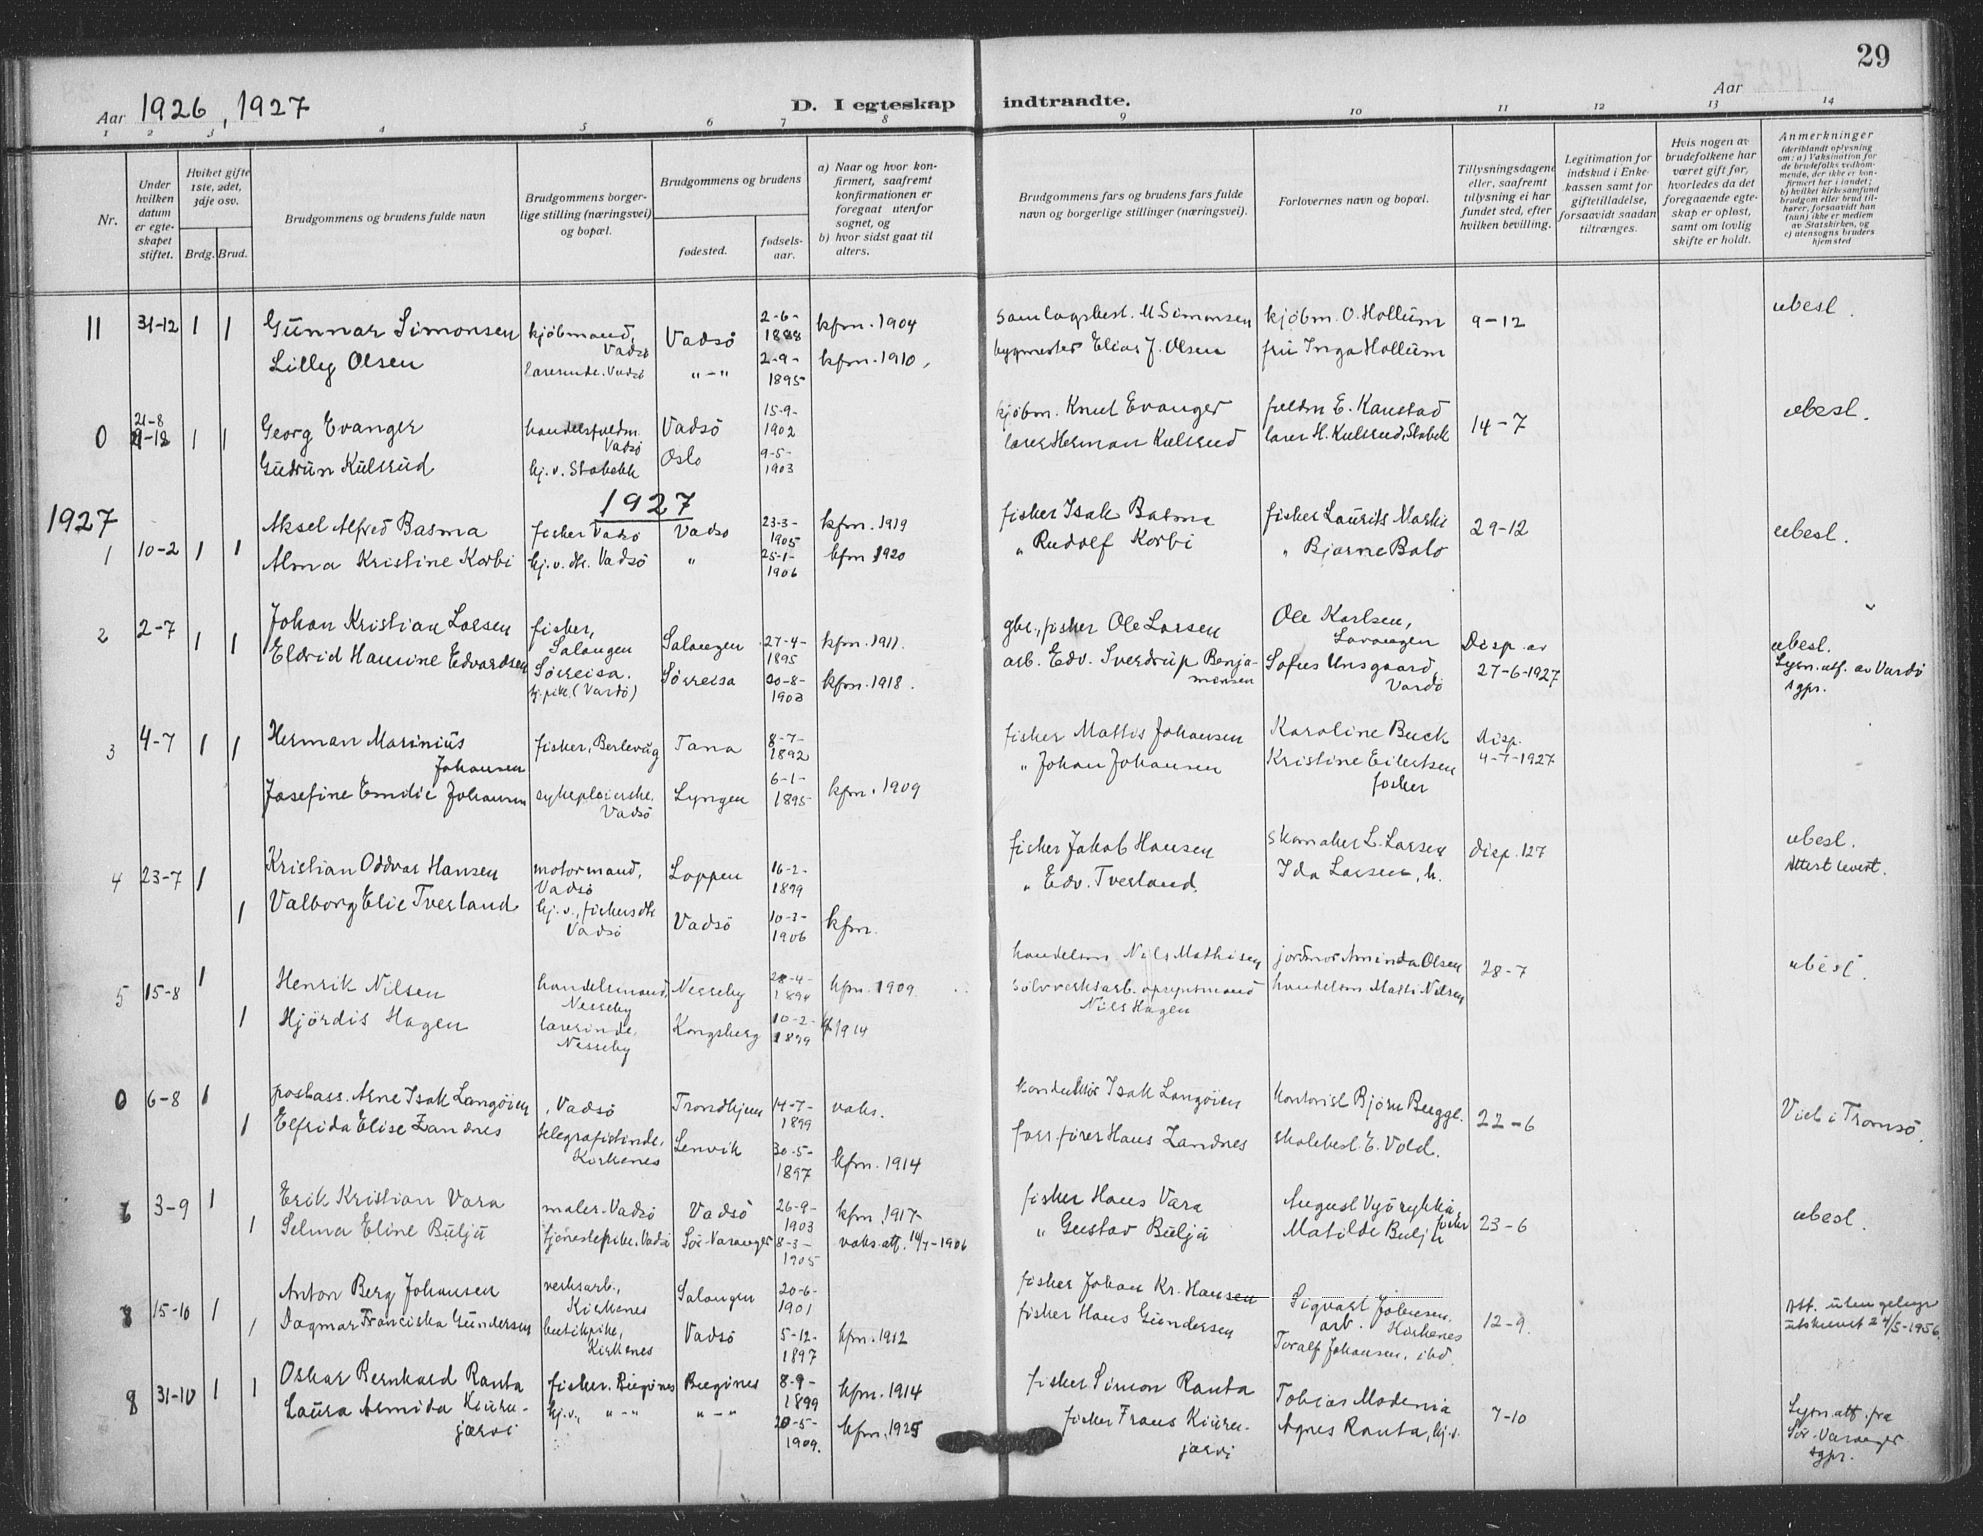 29
Aar 1926, 1927
D. I egteskap indtraadte.
Aar
1 2 3 4 5 6 7 8 9 10 11 12 13 14
Nr.
Under hvilken datum er egteskapet stiftet.
Hvilket gifte 1ste, 2det, 3dje osv.
Brdg. Brud.
Brudgommens og brudens fulde navn
Brudgommens borgerlige stilling (næringsvei) og bopæl.
Brudgommens og brudens
fødested.
fødselsaar.
a) Naar og hvor konfirmert, saafremt konfirmationen er foregaat utenfor sognet, og
b) hvor sidst gaat til alters.
Brudgommens fars og brudens fars fulde navn og borgerlige stillinger (næringsvei).
Forlovernes navn og bopæl.
Tillysningsdagene eller, saafremt tillysning ei har fundet sted, efter hvilken bevilling.
Legitimation for indskud i Enkekassen samt for giftetilladelse, forsaavidt saadan tiltrænges.
Hvis nogen av brudefolkene har været gift før, hvorledes da det foregaaende egteskap er opløst, samt om lovlig skifte er holdt.
Anmerkninger (deriblandt oplysning om: a) Vaksination for de brudefolks vedkommende, der ikke er konfirmert her i landet; b) hvilket kirkesamfund brudgom eller brud tilhører, forsaavidt han (hun) ikke er medlem av Statskirken, og c) utensogns bruders hjemsted
11 31-12 1 1 Gunnar Simonsen kjøbmand, Vadsö Vadsö 2-6-1888 kfm. 1904 samlagsbest. M Simonsen kjøbm. O. Hollum 9-12 ubesl.
Lilly Olsen lærerinde. Vadsö "-" 2-9-1895 kfm. 1910, bygmester Elias J. Olsen fru Inga Hollum
0 21-8 1 1 Georg Evanger handelsfuldm. Vadsö Vadsö 15-9-1902 kjöbm. Knut Evanger fuldm E. Kanstad 14-7 ubesl.
Gudrun Kulsrud hj. v. Stabekk Oslo 9-5-1903 lærer Herman Kulsrud lærer H. Kulsrud, Stabek
1927 1927
1 10-2 1 1 Aksel Alfred Basma fisker Vadsö Vadsö 23-3-1905 kfm. 1919 fisker Isak Basma fisker Laurits Marki 29-12 ubesl.
Alma Kristine Korbi hj. v. dtr. Vadsö " 25-1-1906 kfm 1920 " Rudolf Korbi " Bjarne Balo
2 2-7 1 1 Johan Kristian Larsen fisker, Salangen Salangen 27-4-1895 kfm. 1911. gbr., fisker Ole Larsen Ole Karlsen, Lavangen Disp. av 27-6-1927 ubesl.
Eldrid Hansine Edvardsen Sörreisa. hj. pike. (Vardö) Sörreisa 20-8-1903 kfm. 1918. arb. Edv. Sverdrup Benjaminsen Sofus Unsgaard, Vardö Lysn. att. av Vardö sgpr.
3 4-7 1 1 Herman Marinius Johansen fisker, Berlevåg Tana 8-7-1892 fisker Mattis Johansen Karoline Buck disp. 4-7-1927
Josefine Emilie Johansen sykepleierske, Vadsö Lyngen 6-1-1895 kfm. 1909 " Johan Johansen Kristine Eilertsen
4 23-7 1 Kristian Oddvar Hansen motormand, Vadsö Loppen 16-2-1899 fisker Jakob Hansen Skomaker L. Larsen disp. 127 ubesl. Attest levert.
1 Valborg Elie Tverland hj. v., fiskersdtr Vadsö Vadsö 10-3-1906 kfm. " Edv. Tverland. Ida Larsen, h.
5 15-8 1 Henrik Nilsen handelsmand, Nesseby Nesseby 28-4-1894 kfm. 1909. handelsm Nils Mathisen jordmor Aminda Olsen 28-7 ubesl.
1 Hjördis Hagen lærerinde, Nesseby Kongsberg 10-2-1899 1914 sölvverksarb. opsynsmand Nils Hagen handelsm Matti Nilsen
0 6-8 1 postass. Arne Isak Langöien , Vadsö Trondhjem 14-7-1899 vaks. Konduktör Isak Langöien Kontorist Björn Bugge. 22-6 Viet i Tromsö.
1 Elfrida Elise Zandnes telegrafistinde, Kirkenes Lenvik 30-5-1897 kfm. 1914 Hans Zandnes skolebest. E. Vold.
6 3-9 1 Erik Kristian Vara maler. Vadsö Vadsö 26-9-1903 kfm. 1917 fisker Hans Vara August 23-6 ubesl.
1 Selma Eline Bulju tjenestepike. Vadsö Sör-Varanger 8-3-1905 vaks. att. 14/7-1906 " Gustav Bulju Matilde Bulju
15-10 1 Anton Berg Johansen verksarb., Kirkenes Salangen 20-6-1901 fisker Johan Kr. Hansen Sigvart Johansen, arb. Kirkenes 12-9. Att. uten gebyr utskrevet 24/5-1956.
1 Dagmar Franciska Gundersen butikpike, Kirkenes Vadsö 5-12-1897 kfm. 1912 fisker Hans Gundersen Toralf Johansen, ibd.
8 31-10 1 1 Oskar Bernhard Ranta fisker. Bugönes Bugönes 8-9-1899 kfm. 1914 fisker Simon Ranta Tobias Modenia 7-10 Lysn. att. fra Sör-Varanger sgpr.
Laura Armida Kiurujærvi hj. v., "-" "-" 20-5-1909. kfm. 1925 fisker Frans Kiurujærvi Agnes Ranta, hj. v.